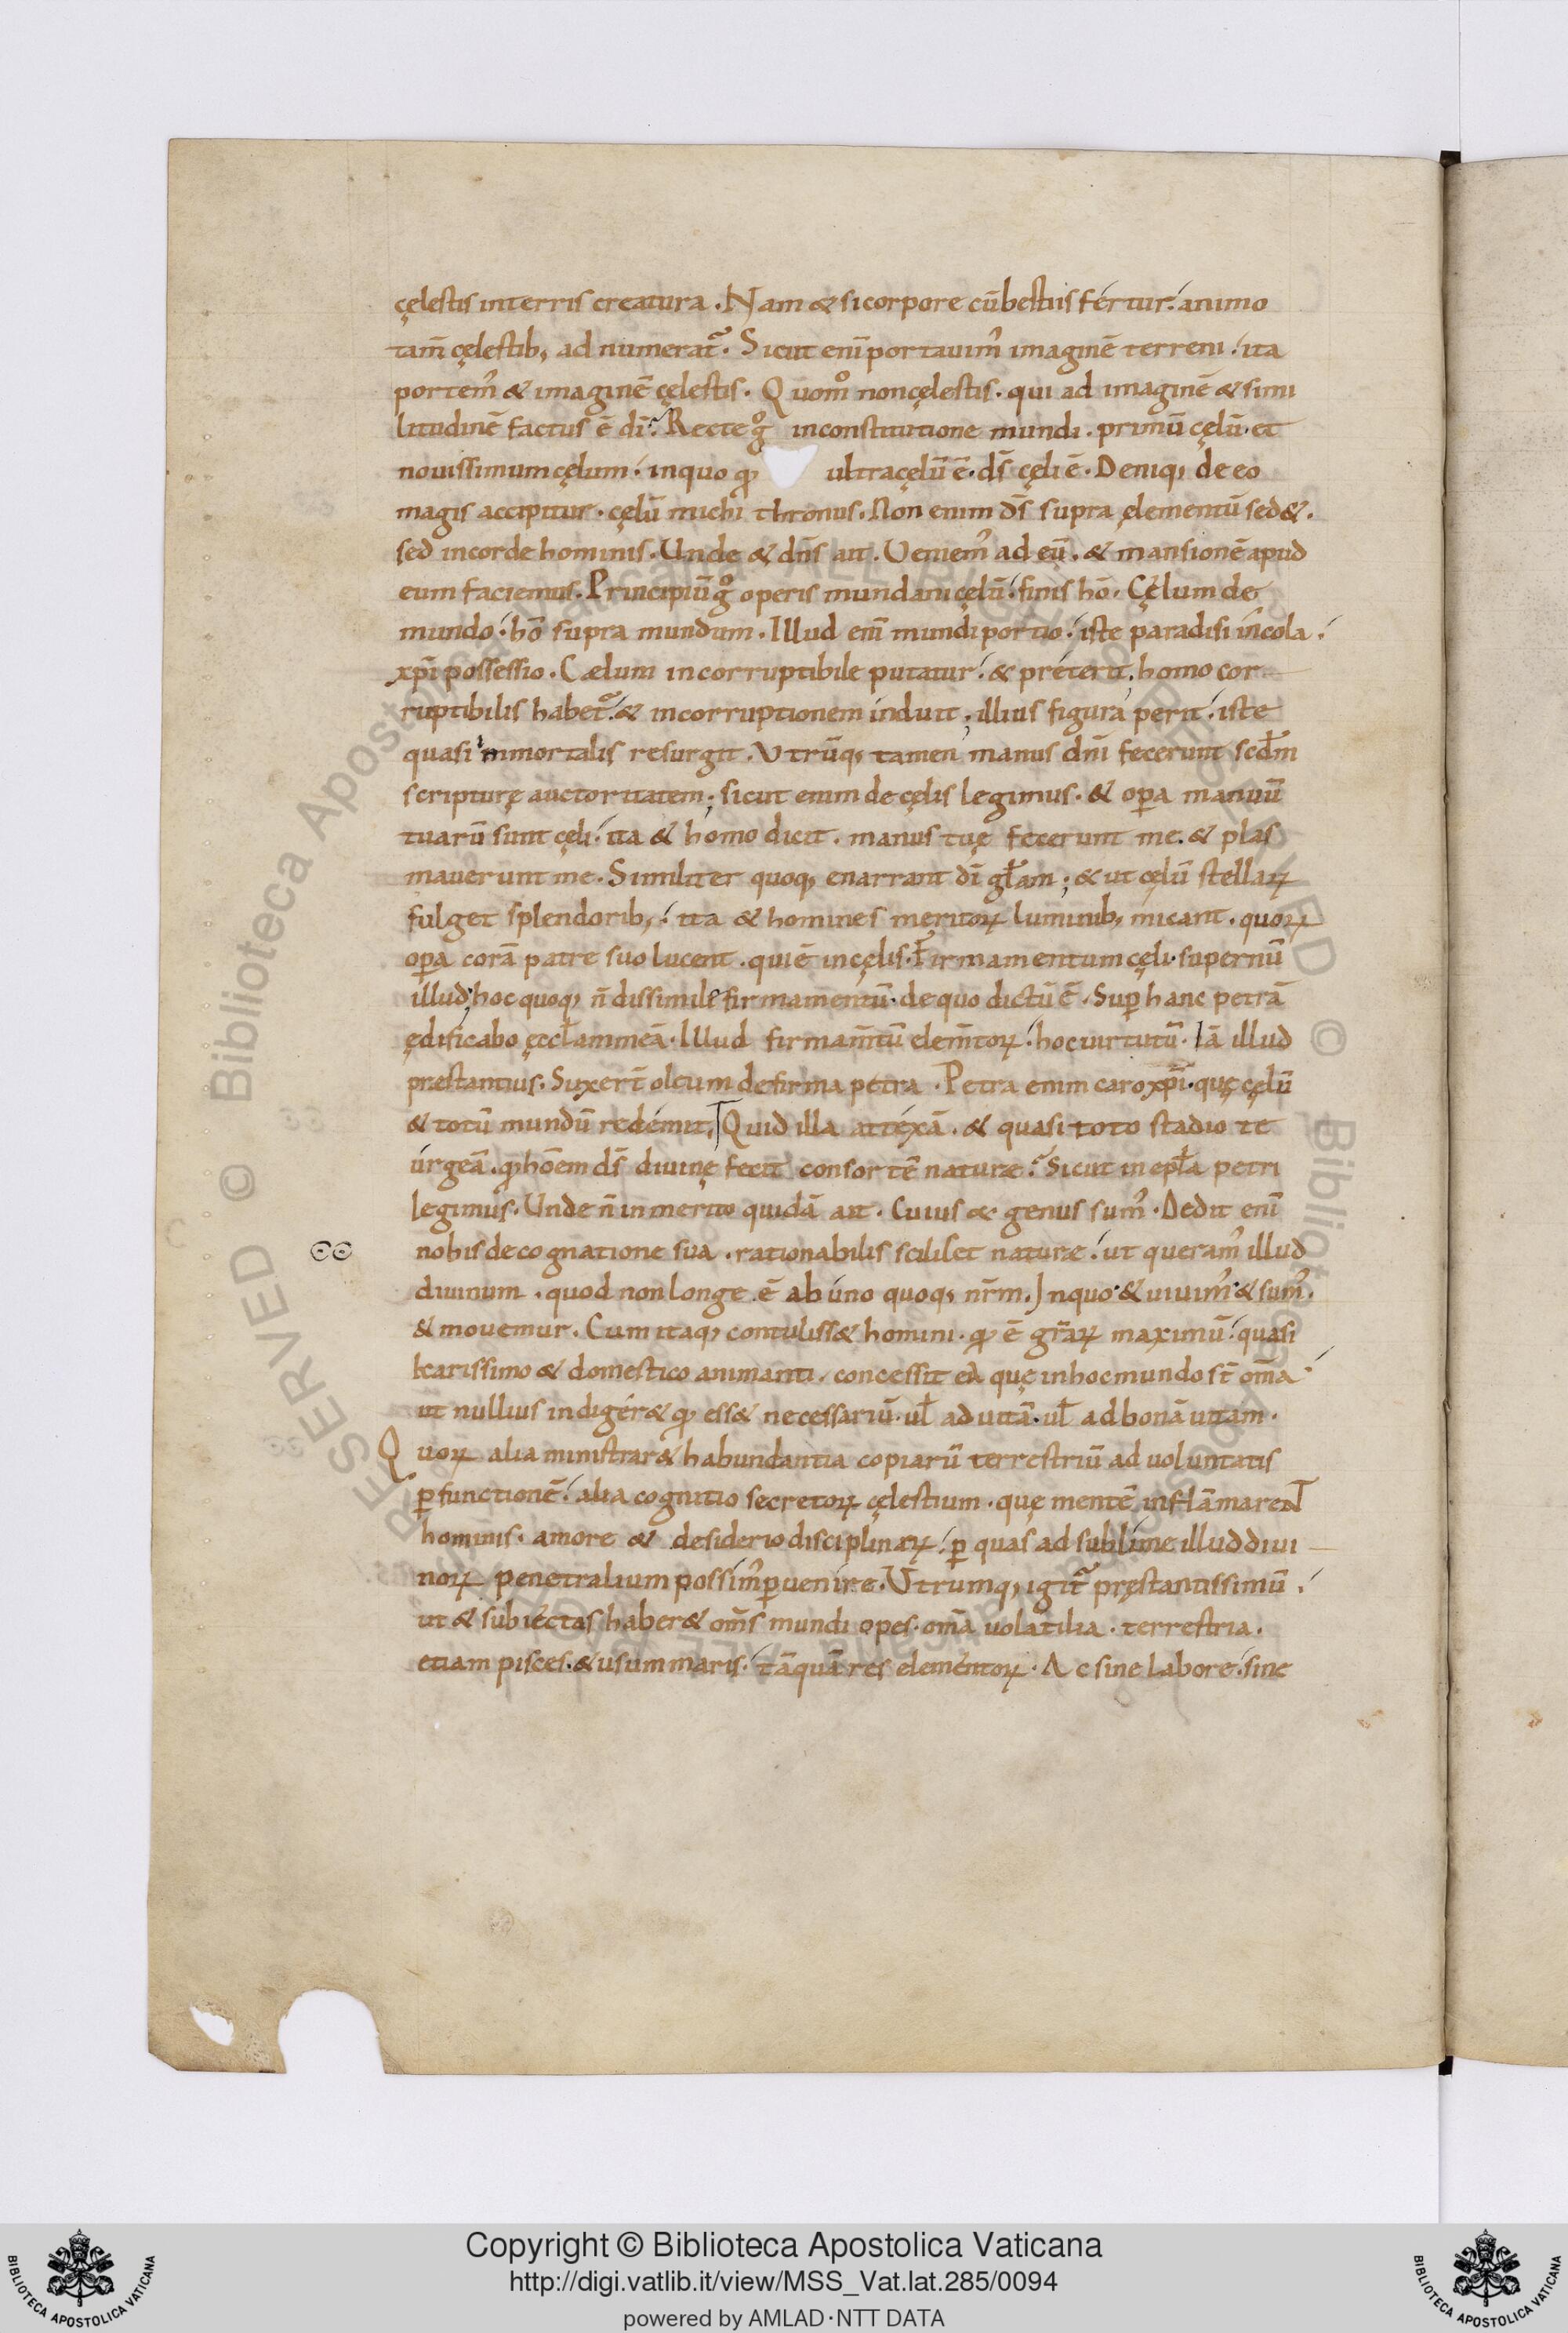 cęlestis in terris creatura. Nam & si corpore cū bestiis fertur. animo
tam̄ cęlestib; ad numerat̃. Sicut enī portauim᾽ imaginē terreni. ita
portem᾽ & imaginē cęlestis. Quom̊ non cęlestis. qui ad imaginē & simi
litudinē factus ē dī? Recte g̊ in constitutione mundi. primū cęlū. et
nouissimum cęlum. in quo ꝙ ultra cęlū ē. ds̄ cęli ē. Deniq; de eo
magis accipitur. cęlū michi thronus. Non enim ds̄ supra ęlementū sed&.
sed in corde hominis. Unde & dn̄s ait. Ueniem᾽ ad eū. & mansionē apud
eum faciemus. Principiū g̊ operis mundani cęlū. finis hō. Cęlum de
mundo. hō supra mundum. Illud enī mundi portio. iste paradisi incola.
xp̄i possessio. Cælum incorruptibile putatur. & preterit. homo cor
ruptibilis habet̃. & incorruptionem induit; illius figura perit. iste
quasi inmortalis resurgit. Utrūq; tamen manus dn̄i fecerunt scdm̄
scripturę auctoritatem; sicut enim de cęlis legimus. & oꝑa manuū
tuarū sunt cęli. ita & homo dicit. manus tuę fecerunt me. & plas
mauerunt me. Similiter quoq; enarrant dī gła̅m; & ut cęlū stellaꝝ
fulget splendorib; ita & homines meritoꝝ luminib; micant. quoꝝ
oꝑa corā patre suo lucent. qui ē in cęlis. Firmamentum cęli supernū
illud; hoc quoq; n̄ dissimile firmamentū. de quo dictū ē. Suꝑ hanc petrā
ędificabo ęccłam meā. Illud firmam̄tū elem̄toꝝ. hoc uirtutū. Iā illud
prestantius. Suxert̄ oleum de firma petra. Petra enim caro xp̄i. quę cęlū
& totū mundū redemit. Quid illa attexā. & quasi toto stadio te
urgeā. ꝙ hōem ds̄ diuinę fecit consortē naturæ? Sicut in epła petri
legimus. Unde n̄ inmerito quidā ait. Cuius & genus sum᾽. Dedit enī
nobis de cognatione sua. rationabilis scilicet naturæ. ut queram᾽ illud
diuinum. quod non longe ē ab uno quoq; nr̄m. In quo & uiuim᾽ & sum᾽.
& mouemur. Cum itaq; contuliss& homini. ꝙ ē gr̄aꝝ maximū. quasi
karissimo & domestico animanti. concessit ea quę in hoc mundo st̄ om̄a
ut nullius indiger& ꝙ ess& necessariū. uł ad uitā. uł ad bonā uitam.
Quoꝝ alia ministrar& habundantia copiarū terrestriū ad uoluntatis
ꝑfunctionē. alia cognitio secretoꝝ cęlestium. quę mentē inflāmarent
hominis. amore & desiderio disciplinaꝝ. ꝑ quas ad sublime illud diui
noꝝ penetralium possim᾽ ꝑuenire. Utrumq; igit̃ pręstantissimū.
ut & subiectas haber& om̄s mundi opes. om̄a uolatilia. terrestria.
etiam pisces. & usum maris. tāquā res elementoꝝ. Ac sine labore. sine
Copyright © Biblioteca Apostolica Vaticana
http://digi.vatlib.it/view/MSS_Vat.lat.285/0094
powered by AMLAD·NTT DATA